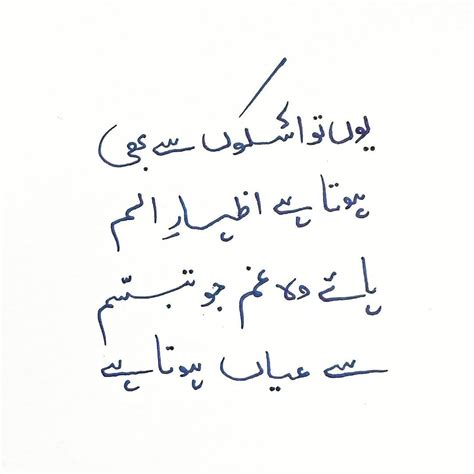 یوں تو اشکوں سے بھی
ہوتا ہے اظہارِ الم
ہائے وہ غم جو تبسّم
سے عیاں ہوتا ہے